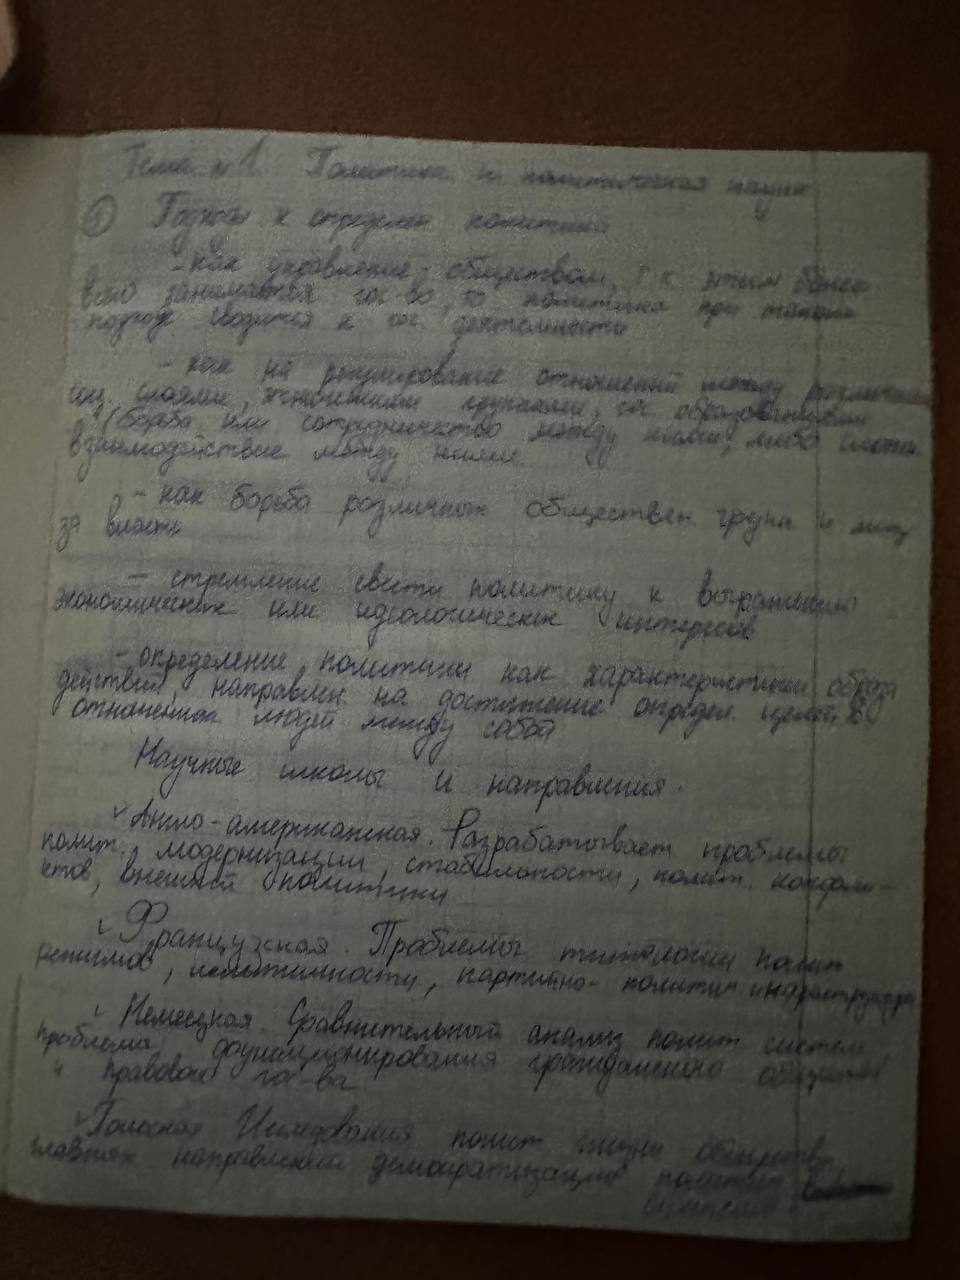 Тема №1. Политика и политическая наука
① Подходы к определен политики
- как управление обществом, т к этим более
всего занимается гос-во, то политика при таком
подходе сводится к гос. деятельности
- как на регулирование отношений между различными
соц. слоями, этническими группами, гос образованиями
(борьба или сотрудничество между ними, либо
взаимодействие между ними.
- как борьба различных обществен. групп и лиц
за власть
- стремление свести политику к выражению
экономических или идеологических интересов
- определение политики как характеристики образа
действий, направлен на достижение определ. целей в
отношениях людей между собой
Научные школы и направления.
✓ Англо-американская. Разрабатывает проблемы
полит. модернизации, стабильности, полит. конфли-
ктов, внешней политики
✓ Французская. Проблемы типологии полит
режимов, легитимности, партийно-политич инфраструктуры
✓ Немецкая. Сравнительный анализ полит систем
проблемы функционирования гражданского общества
и правового гос-ва
✓ Польская Исследования полит жизни общества,
главных направлений демократизации политич
системы